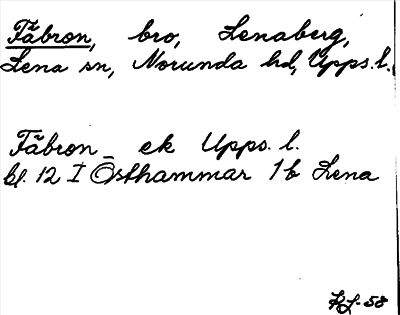 Fäbron, bro, Lenaberg,
Lena sn, Norunda hd, Upps. l.
Fäbron ek Upps. l.
bl. 12 I Östhammar 1b Lena
RL-58